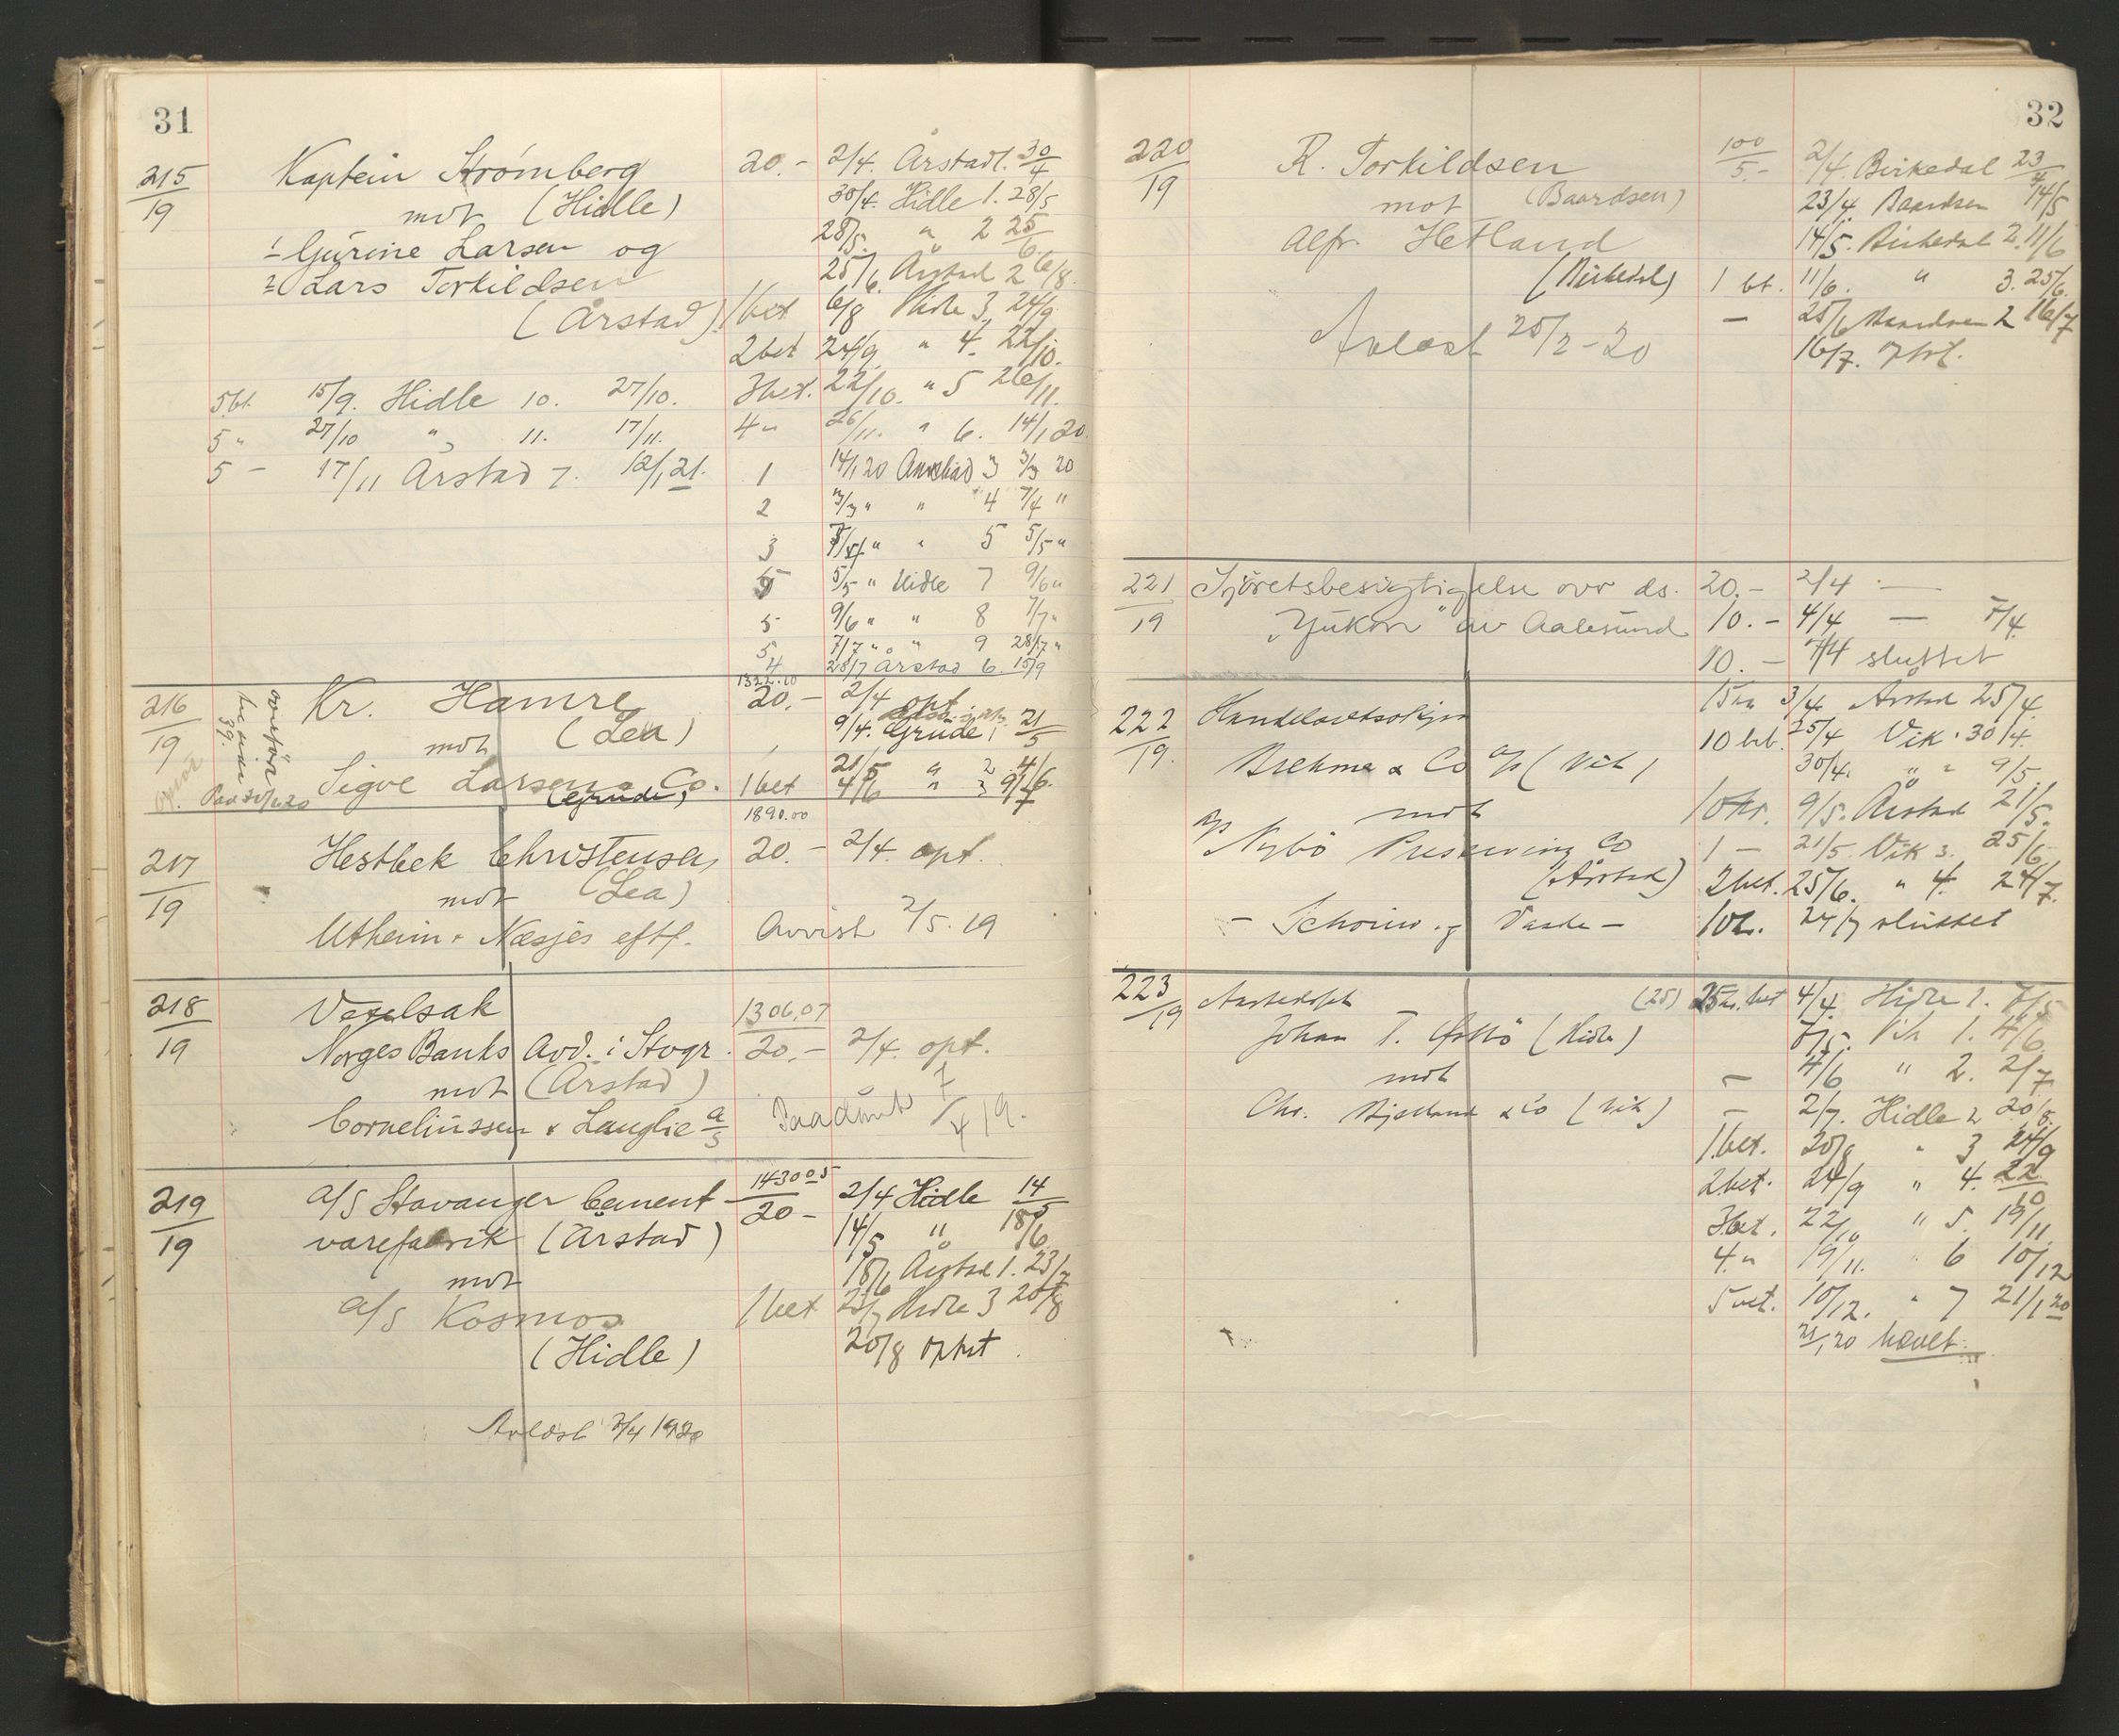 31
215/19 Kaptein Strømberg 20.- 2/4. Årstad 1. 30/4
mot (Hidle) 30/4. Hidle 1. 28/5
1 Gurine Larsen og 28/5. " 2 25/6
2 Lars Torkildsen 25/6. Årstad 2 6/8.
(Årstad) 1 bet 6/8 Hidle 3. 24/9
2 bet 24/9. " 4. 22/10.
5 bt. 15/9. Hidle 10. 27/10. 3 bet. 22/10. " 5 26/11.
5 " 27/10 " 11. 17/11. 4 " 26/11. " 6. 14/1 20
5 - 17/11 Årstad 7. 12/1 21. 1 14/1 20 Aarstad 3 3/3 20
2 3/3 " " 4 7/4 "
3 7/4 " " 5 5/5 "
5 5/5 " Hidle 7 9/6 "
5 9/6 " " 8 7/7 "
5 7/7 " " 9 28/7 "
4 28/7 Årstad 6. 15/9
216/19 Kr. Hamre 1322.10 20.- 2/4 opt
mot (Lea) 9/4. Grude 1 21/5
21/5 " 2 4/6
Sigve Larsen & Co. 1 bet 4/6 " 3
(Grude)
217/19 Hestbek Christensen 1890.00 20.- 2/4. opt.
mot (Lea)
Utheim & Næsjes eftf. Avvist 2/5. 19
218/19 Vexelsak 1306.07
Norges Banks Avd. i Stvgr. 20.- 2/4. opt.
mot (Årstad)
Corneliussen & Langlie a/s Paadömt 7/4 19.
219/19 A/S Stavanger Cement- 1430.05 20- 2/4 Hidle 14/5
varefabrik (Årstad) 14/5 " 18/6
mot 18/6 Årstad 1. 23/7
A/S Kosmos 1 bet 23/7 Hidle 3 20/8
(Hidle) 20/8 opt.
Avlöst 1920
32
220/19 R. Torkildsen 100/5- 2/4. Birkedal 23/4
mot (Baardsen) 23/4. Baardsen 14/5
Alfr. Hetland 14/5. Birkedal 2. 11/6
(Birkedal) 1 bt. 11/6. " 3. 25/6.
- 25/6 Baardsen 2 16/7
Avløst 25/2-20 16/7.
221/19 Sjöretsbesigtigelse ovr ds. 20.- 2/4 -
"Yukon" av Aalesund 10.- 4/4 - 7/4
10.- 7/4 sluttet
222/19. 3/4 Årstad 25/4.
Brekme & Co A/S (Vik) 25/4 Vik 30/4.
30/4. " " 9/5.
mot 10 kr. 9/5. Årstad 21/5.
A/S Nybö Preserving Co 1 - 21/5. Vik 3. 25/6
(Årstad) 2 bet. 25/6. " 4. 24/7.
24/7 sluttet
223/19 (25) 4/4. Hidle 1. 7/5
Johan T. (Hidle) 7/5. Vik 1. 4/6
mot - 4/6 " 2. 2/7
Chr. Bjelland & Co (Vik) - 2/7. Hidle 2 20/8.
1 bet. 20/8 " 3 24/9
2 bet. 24/9 " 4. 22/10
3 bet. 22/10 " 5. 19/11
4. " 19/11. " 6 10/12
5 bet. 10/12. " 7 21/1 20
21/1 20 hævet.